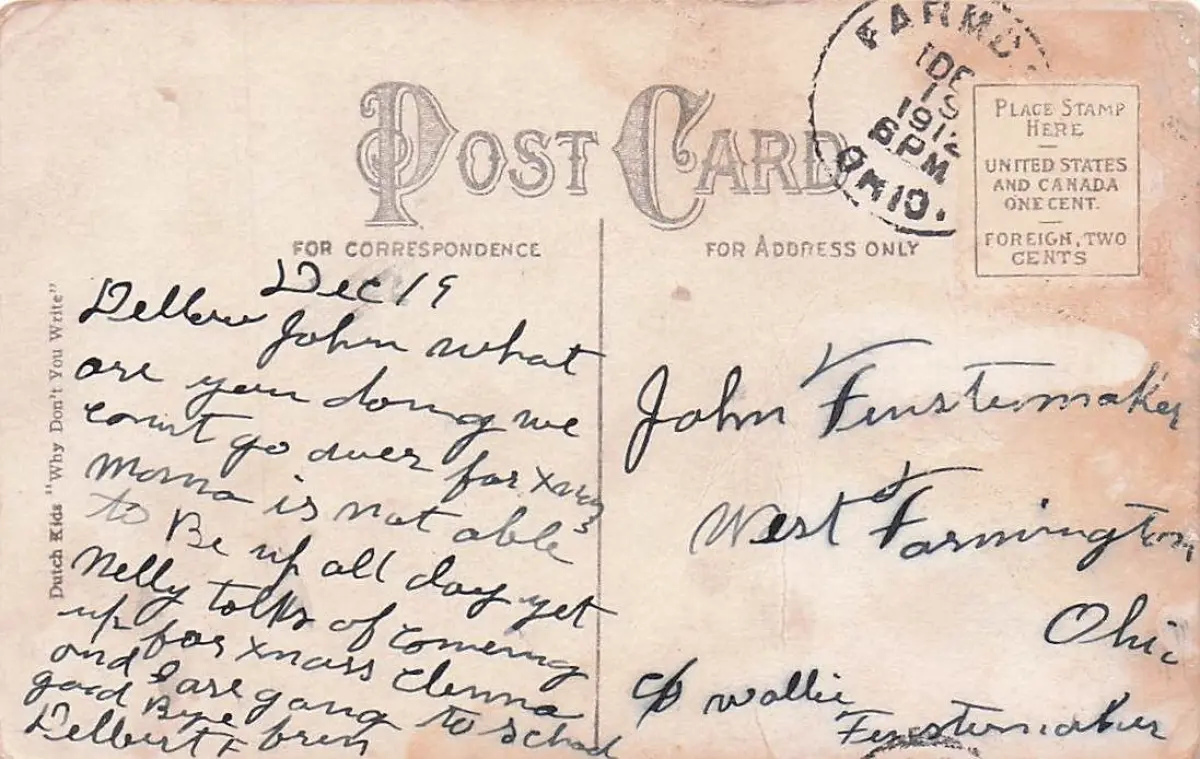 POST CARD
FOR CORRESPONDENCE
FOR ADDRESS ONLY
FARMD
DE
19
1912
6 PM
OHIO.
PLACE STAMP
HERE
UNITED STATES
AND CANADA
ONE CENT.
FOREIGN, TWO
CENTS
Dutch Kids "Why Don't You Write"
Dec 19
Hellow John what
are you doing we
count go over for xmas
Moma is not able
to Be up all day yet
Nelly talks of comeing
up for xmass Clenna
and I are gang to school
good Bye
Delbert F
John Finstermaker
West Farmington
Ohio
c/o Wallie
Finstermaker